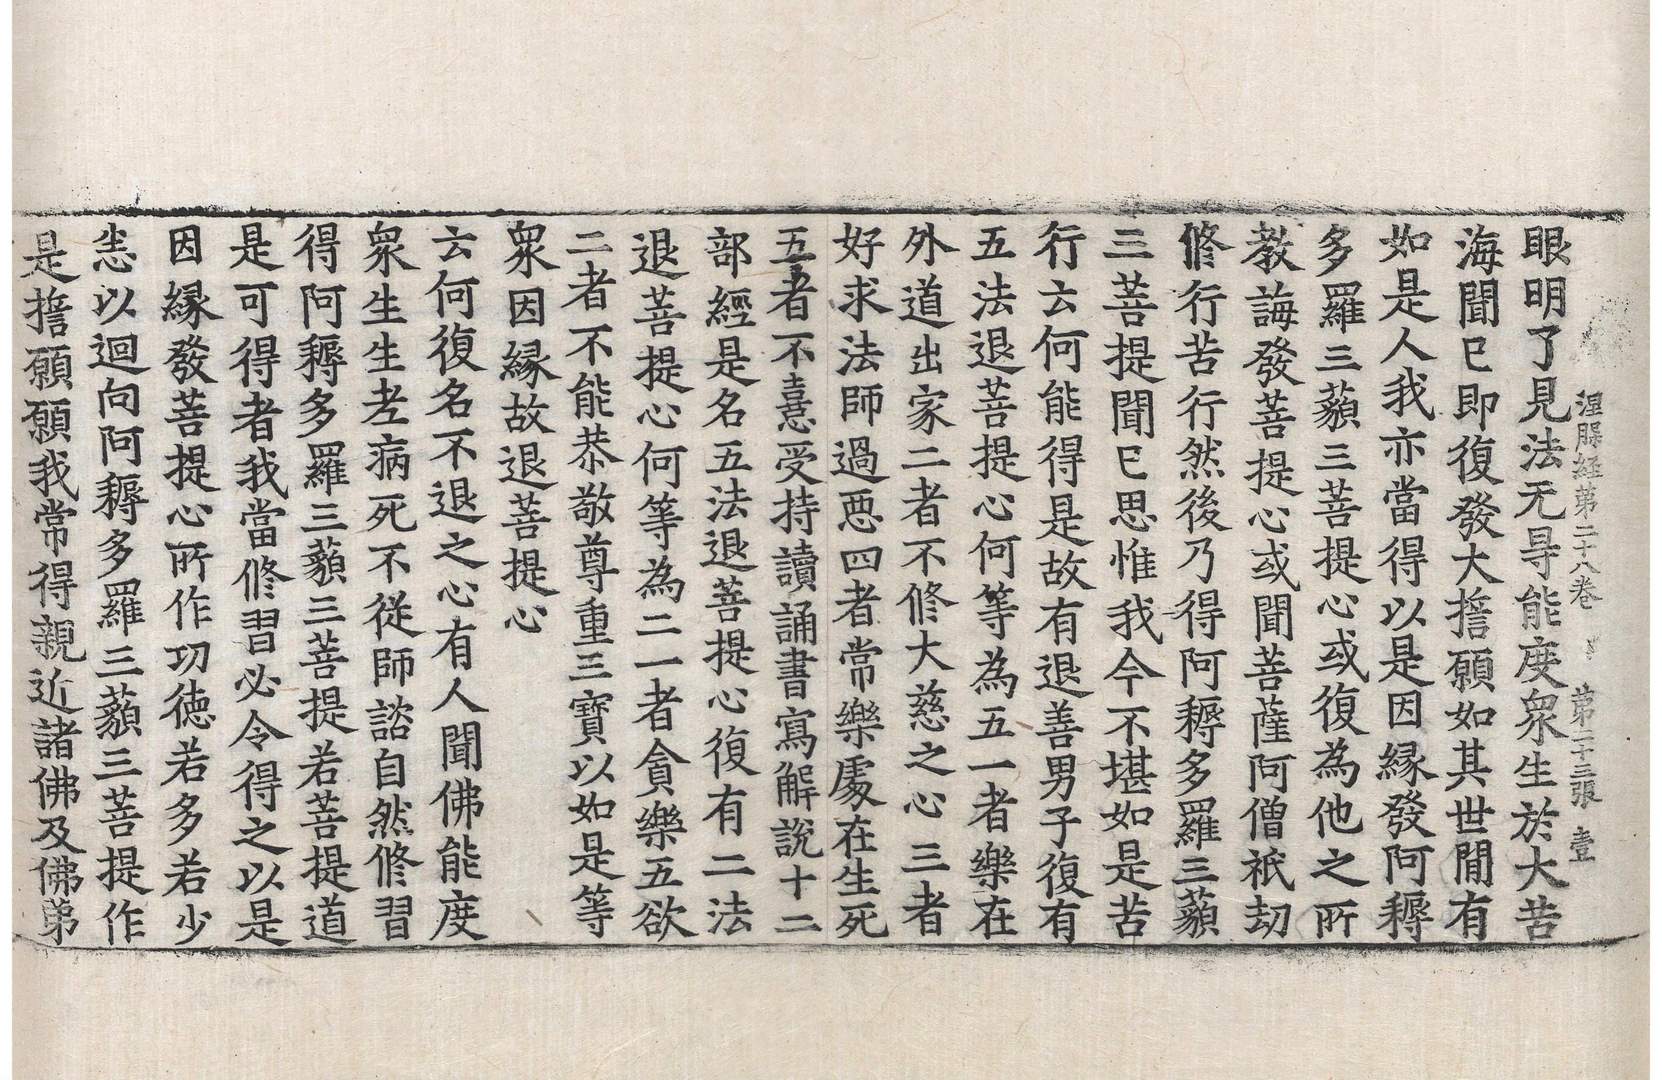 涅槃経第二十八卷 第二十三張 壹
眼明了見法无㝵能度衆生於大苦
海聞已即復發大擔願如其世閒有
如是人我亦當得以是因縁發阿耨
多羅三藐三菩提心或復為他之所
教誨發菩提心或聞菩薩阿僧祇劫
修行苦行然後乃得阿耨多羅三藐
三菩提聞已思惟我今不堪如是苦
行云何能得是故有退善男子復有
五法退菩提心何等為五一者樂在
外道出家二者不修大慈之心三者
好求法師過恶四者常樂處在生死
五者不憙受持讀誦書寫解說十二
部經是名五法退菩提心復有二法
退菩提心何等為二一者貪樂五欲
二者不能恭敬尊重三寶以如是等
衆因縁故退菩提心
云何復名不退之心有人聞佛能度
衆生生老病死不從師諮自然修習
得阿耨多羅三藐三菩提若菩提道
是可得者我當修習必令得之以是
因縁發菩提心所作功徳若多若少
悉以迴向阿耨多羅三藐三菩提作
是擔願願我常得親近諸佛及佛弟